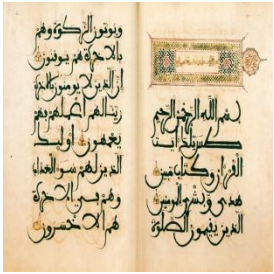 بسم الله الرحمن الرحيم
طس تلك ايت
القران وكتاب مبين
هدى وبشرى للمومنين
الذين يقيمون الصلوة
ويوتون الزكوة وهم
بالاخرة هم يوقنون
ان الذين لا يومنون بالاخرة
زينا لهم اعملهم فهم
يعمهون اوليك
الذين لهم سو العذاب
وهم في الاخرة
هم الاخسرون